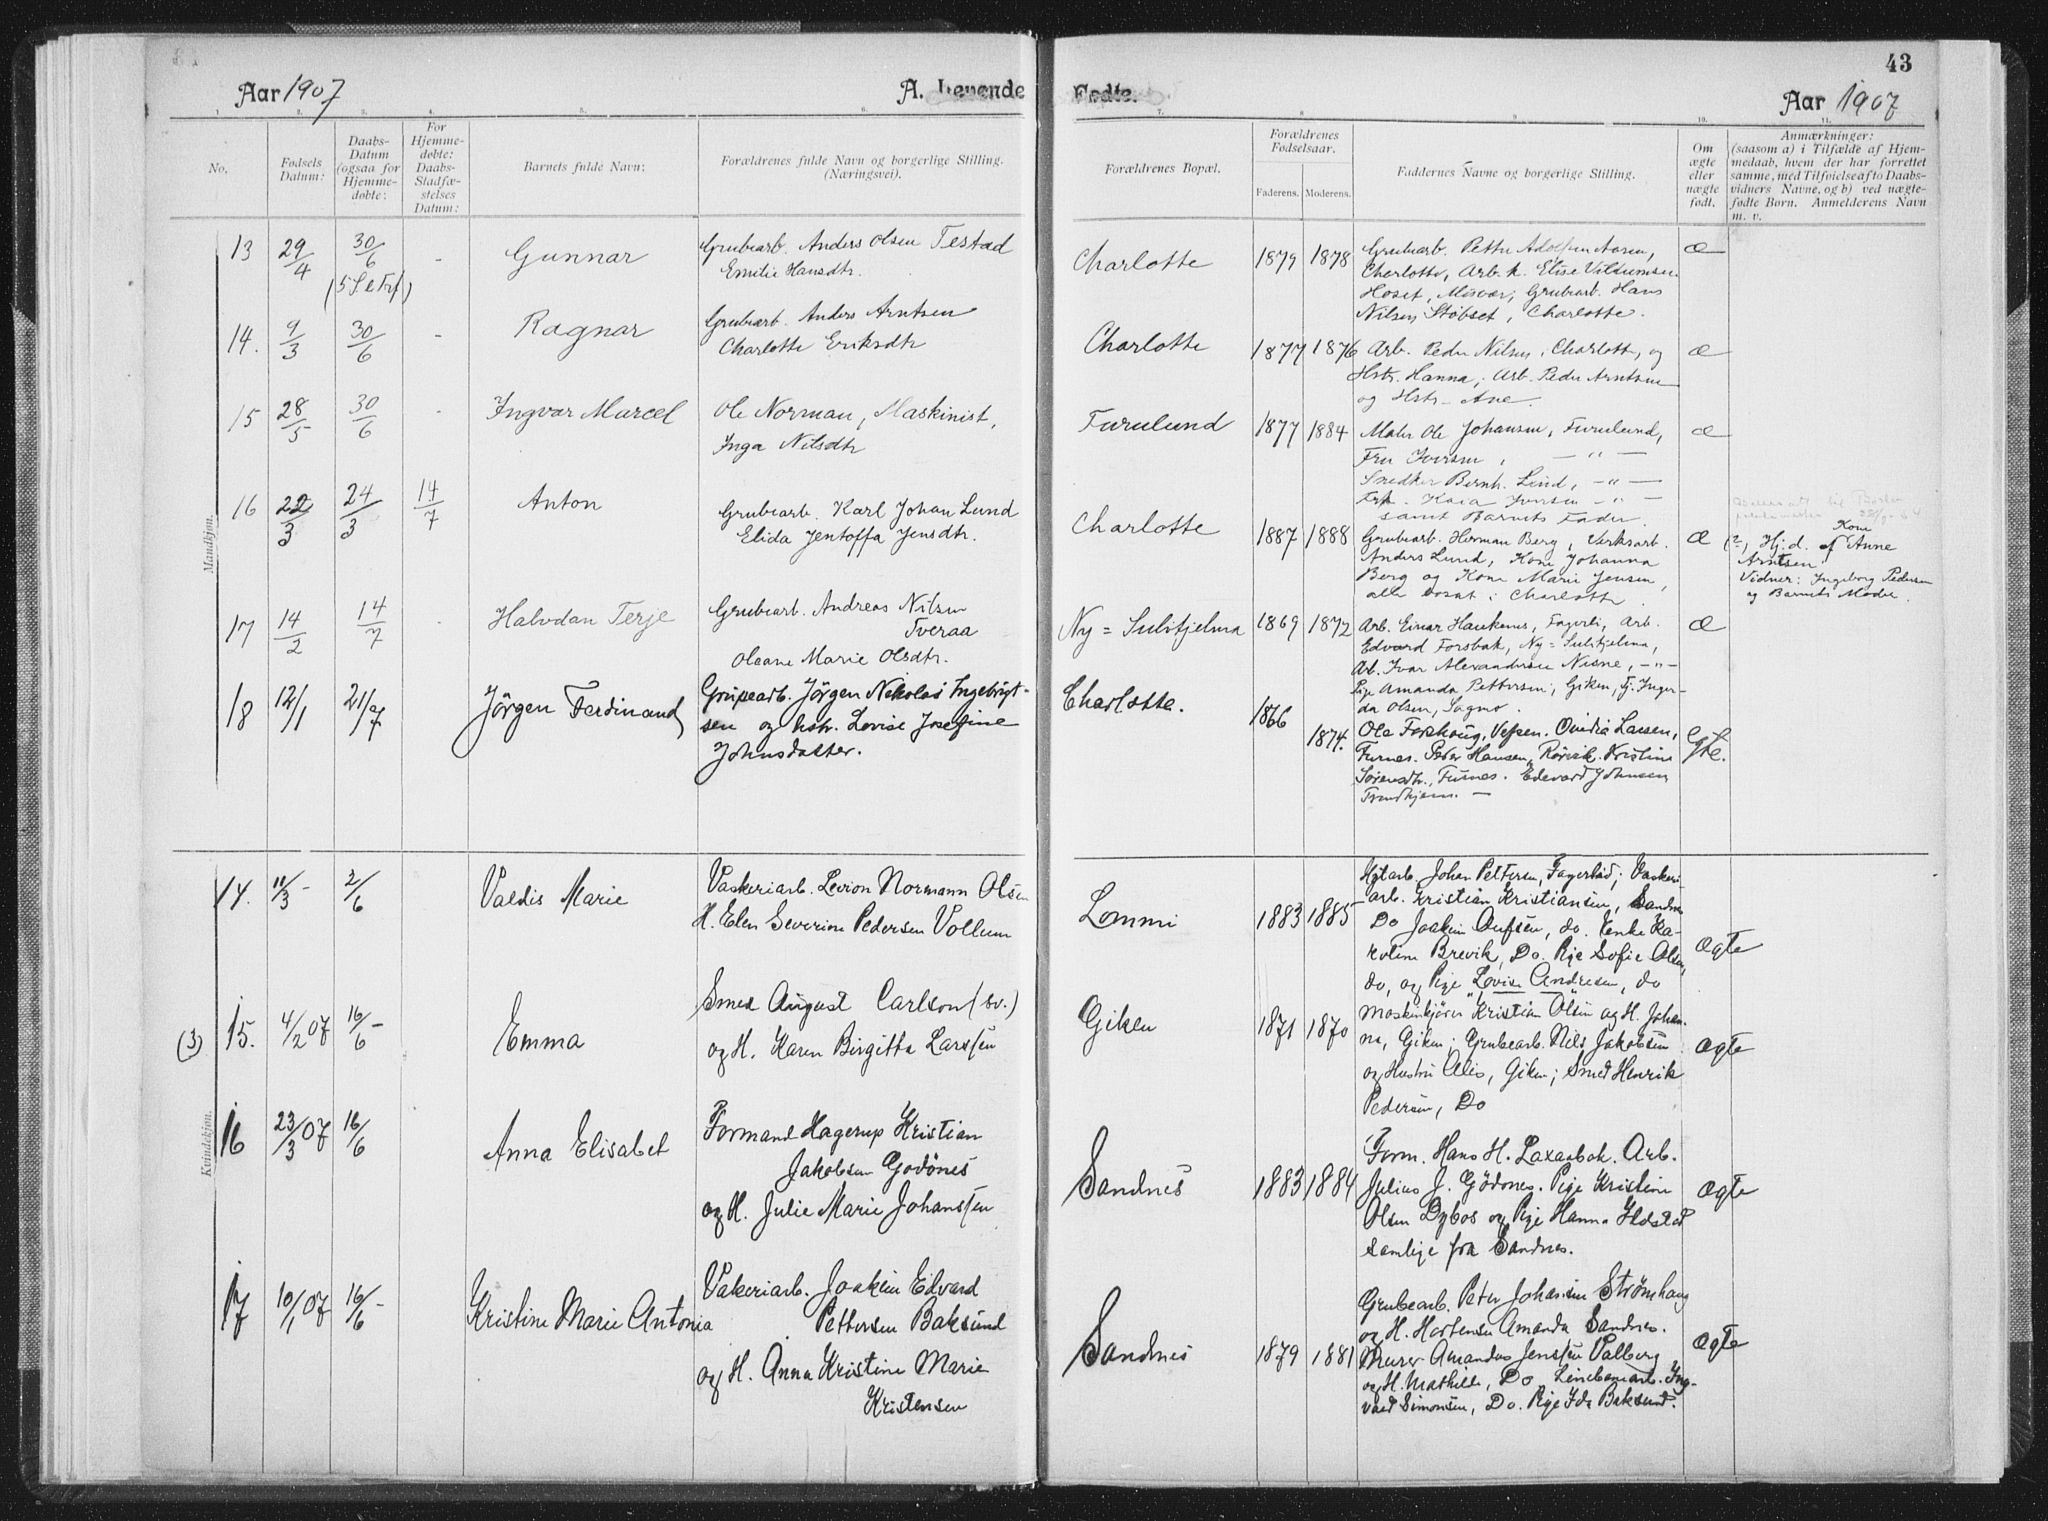 43
Aar 1907
A. Levende
Fødte.
Aar 1907
1. 2. 3. 4. 5. 6. 7. 8. 9. 10. 11.
No.
Fødsels
Datum:
Daabs-
Datum
(ogsaa for
Hjemme-
døbte:
For
Hjemme-
døbte:
Daabs-
Stadfæ-
stelses
Datum:
Barnets fulde Navn:
Forældrenes fulde Navn og borgerlige Stilling.
(Næringsvei).
Forældrenes Bopæl.
Forældrenes
Fødselsaar.
Faderens. Moderens.
Faddernes Navne og borgerlige Stilling.
Om
ægte
eller
uægte
født.
Anmærkninger:
(saasom a) i Tilfælde af Hjem-
medaab, hvem der har forrettet
samme, med Tilføielse af to Daabs-
vidners Navne, og b) ved uægte-
fødte Børn. Anmelderens Navn
m. v.
Mandkjøn.
13 29/4 30/6 - Gunnar
(5 S e Trf)
Grubearb. Anders Olsen Testad
Emilie Hansdtr.
Charlotte 1879 1878
Grubearb. Petter Adolfsen Aasen,
Charlotte, Arb. k. Elise Vildumsen
Hoset, Misvær; Grubearb. Hans
Nilsen Støbset, Charlotte.
æ
14. 9/3 30/6 - Ragnar
Grubearb. Anders Arntsen
Charlotte Eriksdtr
Charlotte 1877 1876
Arb. Peder Nilsen, Charlotte, og
Hstr. Hanna; Arb. Peder Arntsen
og Hstr. Ane.
æ
15 28/5 30/6 - Ingvar Marcel
Ole Norman, Maskinist,
Inga Nilsdtr
Furulund 1877 1884
Maler Ole Johansen, Furulund,
Fru Iversen, — " —
Snedker Bernh. Lind, — " —
Frk. Kaia Iversen — " —
samt Barnets Fader.
æ
16 22/3 24/3 14/7 Anton
Grubearb. Karl Johan Lund
Elida Jentoffa Jensdtr.
Charlotte 1887 1888
Grubearb. Herman Berg, Verksarb.
Anders Lund, Kone Johanna
Berg og Kone Marie Jensen,
alle bosat i Charlotte.
æ
Hj. d. af Kone Anne
Arntsen
Vidner: Ingeborg Pedersen
og Barnets Moder.
17 14/2 14/7 - Halvdan Terje
Grubearb. Andreas Nilsen
Tveraa
Oleane Marie Olsdtr.
Ny=Sulitjelma 1869 1872
Arb. Einar Haukenes, Fagerli, Arb.
Edvard Forsbak, Ny=Sulitjelma,
Arb. Ivar Alexandersen Nisne, — " —
Pige Amanda Pettersen, Giken, Tj. Inger-
da Olsen, Sagmo.
æ
18 12/1 21/7 Jörgen Ferdinand
Grupearb. Jörgen Nikolai Ingebrigt-
sen og hstr. Lovise Josefine
Johnsdatter.
Charlotte. 1866 1874.
Ole Forshaug, Vefsen. Ovidia Larsen,
Furnes. Peder Hansen, Rörvik. Kristine
Sörensdtr., Fusnes. Edevard Johnsen,
Trondhjem. —
Kvindekjøn.
14. 11/3 - 2/6 Valdis Marie
Vaskeriarb. Levion Normann Olsen
H. Elen Severine Pedersen Vollum
Lommi 1883 1885
Hytarb. Johan Pettersen, Fagerlid; Vaskeri-
arb. Kristian Kristiansen, Sandnes
Do Joakim Olufsen, do. Enke Ka-
roline Brevik, Do. Pige Sofie Olsen,
do, og Pige Lovise Andresen, do
ægte
(3) 15. 4/2 07 16/6 - Emma
Smed August Carlson (sv.)
og H. Karen Birgitta Larssen
Giken 1871 1870
Maskinkjører Kristian Olsen og H. Johan-
na, Giken; Grubearb. Nils Jakobsen
og Hustru Alis, Giken; Smed Henrik
Pedersen, Do
ægte
16 23/3 07 16/6 Anna Elisabet
Formand Hagerup Kristian
Jakobsen Godönes
og H. Julie Marie Johanssen
Sandnes 1883 1884
Form. Hans H. Laxaabak. Arb.
Julius J. Gödönes. Pige Kristine
Olsen Dybos og Pige Hanna Ildstad
samlige fra Sandnes.
ægte
17 10/1 07 16/6 - Kristine Marie Antonia
Vakeriarb. Joakim Edvard
Pettersen Baksund
og H. Anna Kristine Marie
Kristensen
Sandnes 1879 1881
Grubearb. Peter Johansen Strömhaug
og H. Hortense Amanda Sandnes.
Murer Amandus Jenssen Valberg
og H. Mathilde, Do Linebanearb. Ing-
vald Simonsen, Do. Pige Ida Baksund.
ægte